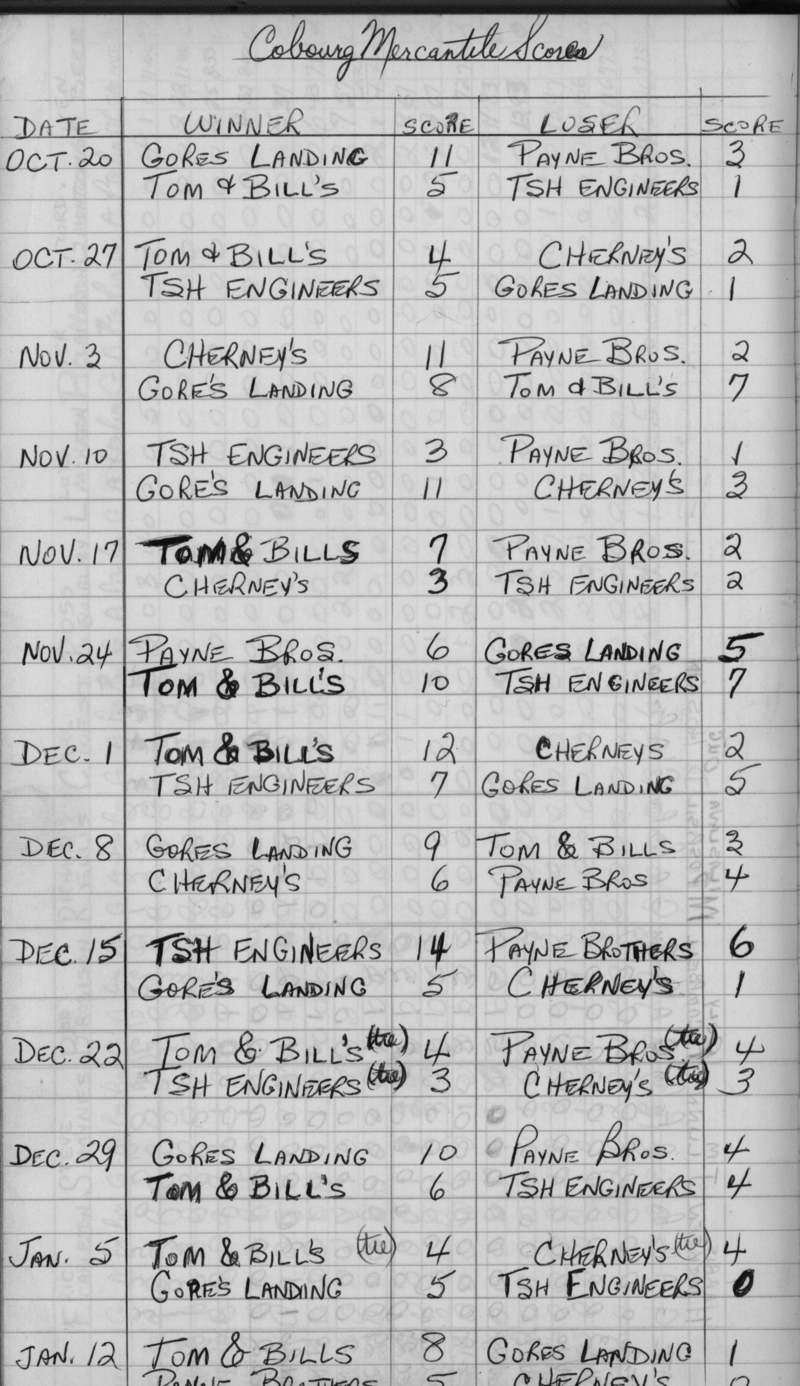 Cobourg Mercantile Scores
DATE WINNER SCORE LOSER SCORE
OCT. 20 GORES LANDING 11 PAYNE BROS. 3
TOM & BILL'S 5 TSH ENGINEERS 1
OCT. 27 TOM & BILL'S 4 CHERNEY'S 2
TSH ENGINEERS 5 GORES LANDING 1
NOV. 3 CHERNEY'S 11 PAYNE BROS. 2
GORE'S LANDING 8 TOM & BILL'S 7
NOV. 10 TSH ENGINEERS 3 PAYNE BROS. 1
GORE'S LANDING 11 CHERNEY'S 3
NOV. 17 TOM & BILLS 7 PAYNE BROS. 2
CHERNEY'S 3 TSH ENGINEERS 2
NOV. 24 PAYNE BROS. 6 GORES LANDING 5
TOM & BILL'S 10 TSH ENGINEERS 7
DEC. 1 TOM & BILL'S 12 CHERNEYS 2
TSH ENGINEERS 7 GORES LANDING 5
DEC. 8 GORES LANDING 9 TOM & BILLS 3
CHERNEY'S 6 PAYNE BROS 4
DEC. 15 TSH ENGINEERS 14 PAYNE BROTHERS 6
GORE'S LANDING 5 CHERNEY'S 1
DEC. 22 TOM & BILL'S (tie) 4 PAYNE BROS. (tie) 4
TSH ENGINEERS (tie) 3 CHERNEY'S (tie) 3
DEC. 29 GORES LANDING 10 PAYNE BROS. 4
TOM & BILL'S 6 TSH ENGINEERS 4
JAN. 5 TOM & BILL'S (tie) 4 CHERNEY'S (tie) 4
GORE'S LANDING 5 TSH ENGINEERS 0
JAN. 12 TOM & BILLS 8 GORES LANDING 1
PAYNE BROTHERS 5 CHERNEY'S